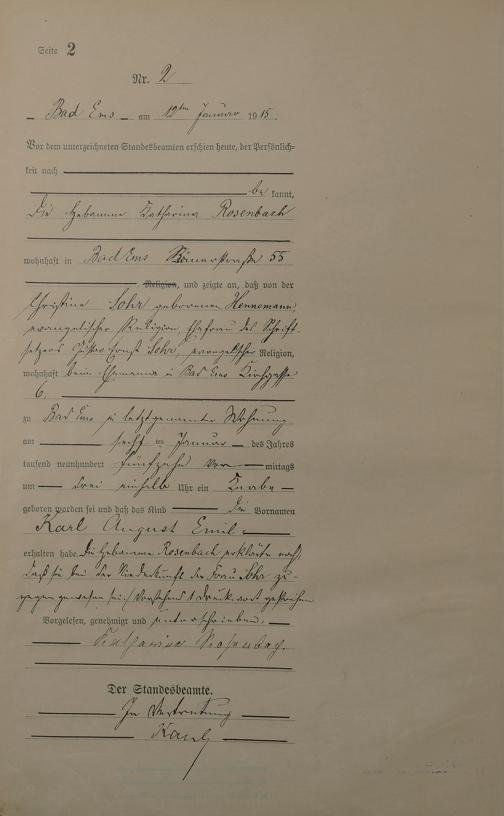 Seite 2
Nr. 2
Bad Ems am 12ten Januar 1915.
Vor dem unterzeichneten Standesbeamten erschien heute, der Persönlich-
keit nach
be kannt,
die Hebamme Katharina Rosenbach
wohnhaft in Bad Ems Römerstraße 55
Religion, und zeigte an, daß von der
Christine Sohr geborenen Hennemann,
evangelischer Religion, Ehefrau des Schrift-
setzers Gustav Ernst Sohr, evangelischer Religion,
wohnhaft beim Ehemanne in Bad Ems Kirchgasse
6,
zu Bad Ems in letztgenannter Wohnung
am sechsten Januar des Jahres
tausend neunhundert fünfzehn Vor mittags
um drei einhalb Uhr ein Knabe
geboren worden sei und daß das Kind die Vornamen
Karl August Emil
erhalten habe. Die Hebamme Rosenbach erklärte noch,
daß sie bei der Niederkunft der Frau Sohr zu-
gegen gewesen sei. Vorstehend 1 Druckwort gestrichen
Vorgelesen, genehmigt und unterschrieben.
Katharina Rosenbach.
Der Standesbeamte.
In Vertretung